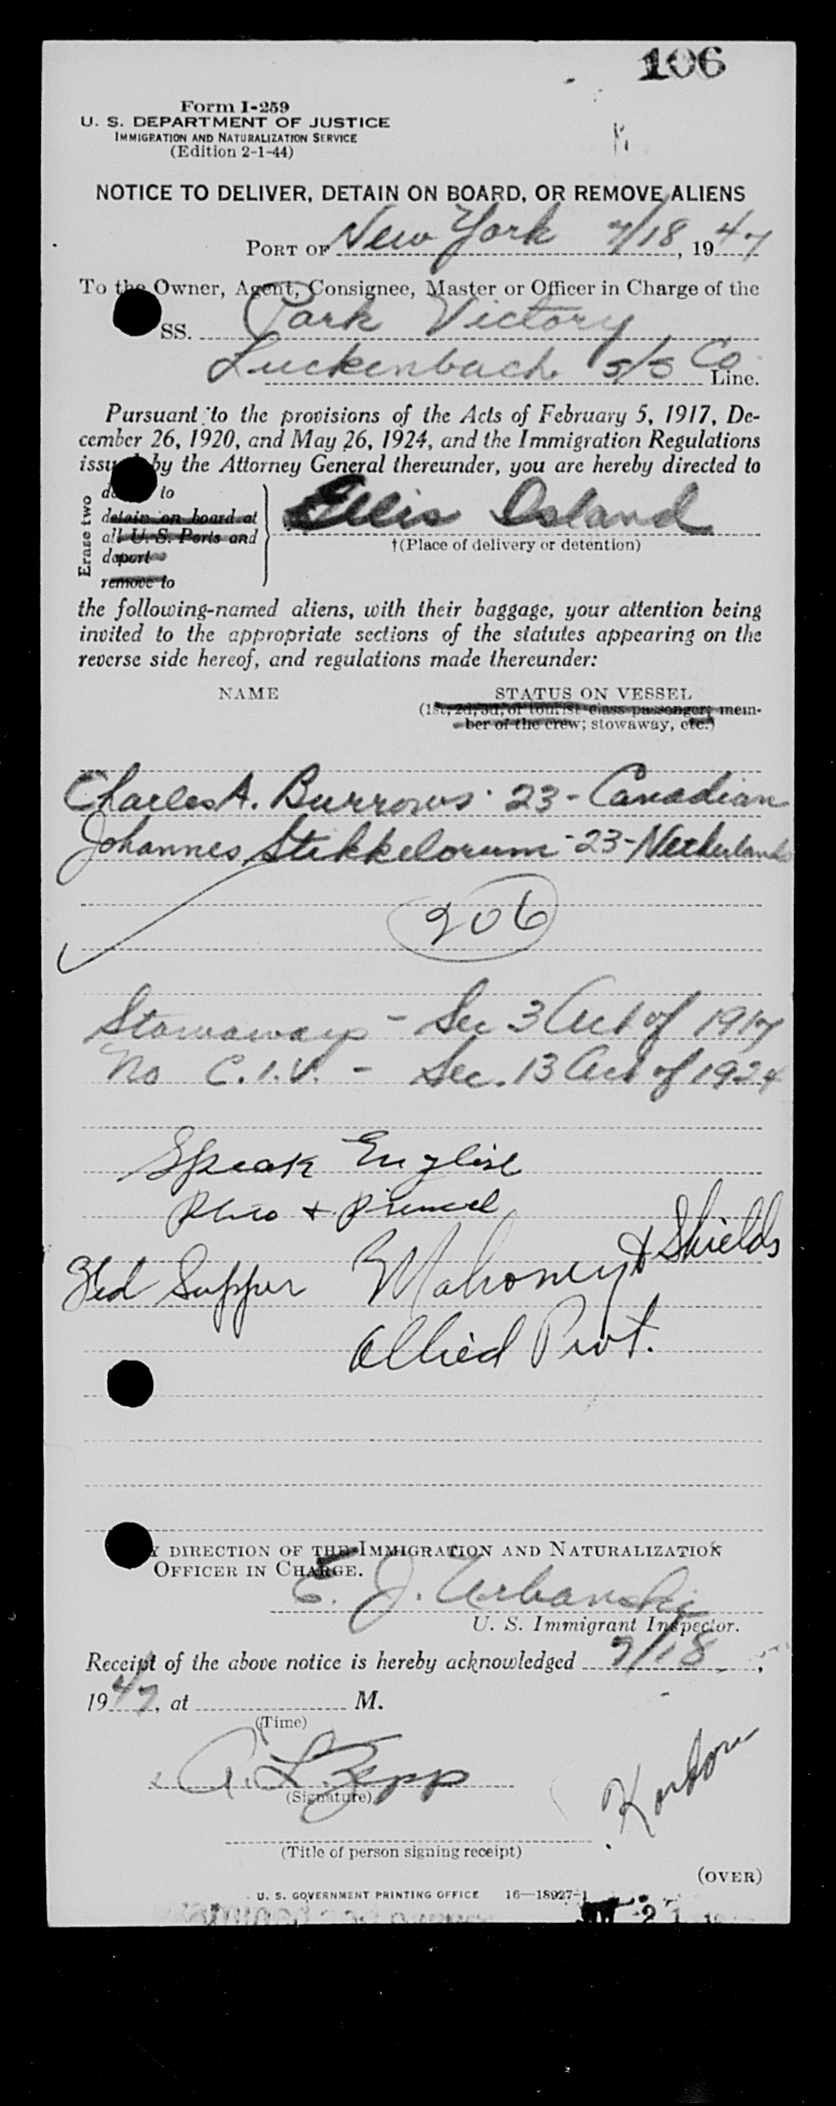 106
Form I-259
U. S. DEPARTMENT OF JUSTICE
IMMIGRATION AND NATURALIZATION SERVICE
(Edition 2-1-44)
NOTICE TO DELIVER, DETAIN ON BOARD, OR REMOVE ALIENS
PORT OF New York 7/18, 1947
To the Owner, Agent, Consignee, Master or Officer in Charge of the
SS. Park Victory
Luckenbach S/S Co Line.
Pursuant to the provisions of the Acts of February 5, 1917, De-
cember 26, 1920, and May 26, 1924, and the Immigration Regulations
issued by the Attorney General thereunder, you are hereby directed to
Erase two
to
detain on board at
all U. S. Ports and
deport
remove to
Ellis Island
†(Place of delivery or detention)
the following-named aliens, with their baggage, your attention being
invited to the appropriate sections of the statutes appearing on the
reverse side hereof, and regulations made thereunder:
NAME STATUS ON VESSEL
(1st, 2d, 3d, or tourist class passenger; mem-
ber of the crew; stowaway, etc.)
Charles A. Burrows - 23 - Canadian
Johannes Stekkelorum - 23 - Netherlands
206
Stowaways - Sec 3 Act of 1917
No C.I.V. - Sec. 13 Act of 1924
Speak English
Supper Mahoney & Shields
Allied Prot.
BY DIRECTION OF THE IMMIGRATION AND NATURALIZATION
OFFICER IN CHARGE.
E. J. Urbanski
U. S. Immigrant Inspector.
Receipt of the above notice is hereby acknowledged 7/18,
1947, at M.
(Time)
A. L. Zepp
(Signature)
(Title of person signing receipt)
(OVER)
U. S. GOVERNMENT PRINTING OFFICE 16—18927-1